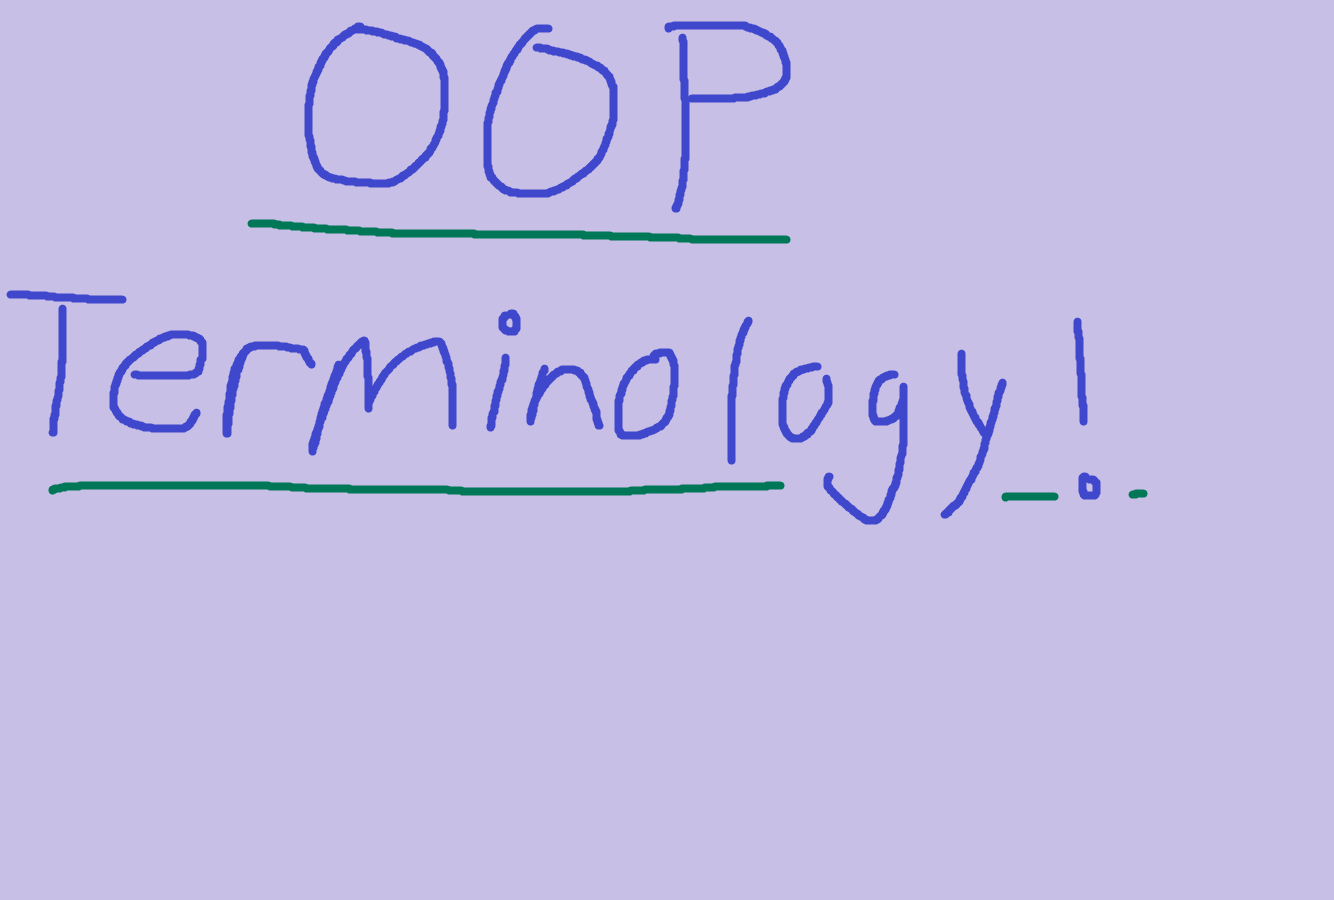 OOP
Terminology!